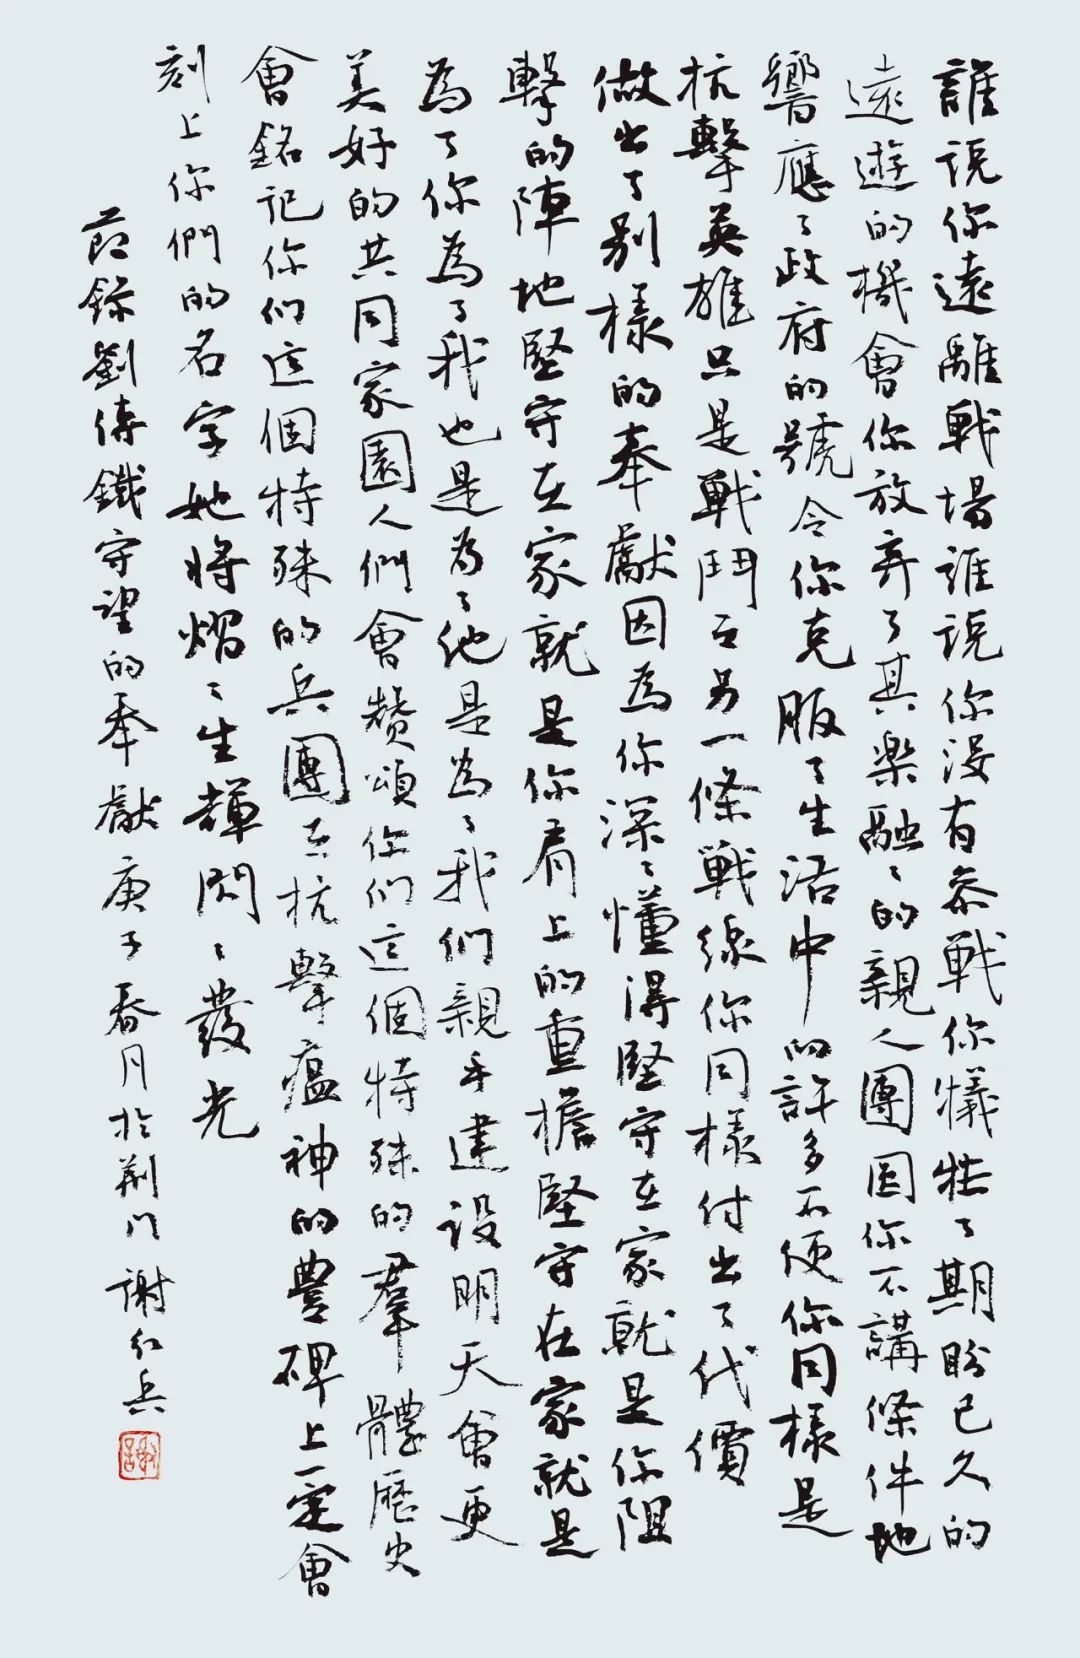 誰説你遠離戰場誰説你没有参戰你犧牲了期盼已久的
遠遊的機會你放弃了其樂融々的親人團圆你不講條件地
響應了政府的號令你克服了生活中的許多不便你同樣是
抗擊英雄只是戰鬥在另一條戰線你同樣付出了代價
做出了别樣的奉獻因為你深々懂得堅守在家就是你阻
擊的陣地堅守在家就是你肩上的重擔堅守在家就是
為了你為了我也是為了他是為了我们親手建设明天會更
美好的共同家園人們會赞頌你们這個特殊的羣體歷史
會銘記你们這個特殊的兵團在抗擊瘟神的豐碑上一定會
刻上你們的名字她將熠々生輝閃々發光
節録劉傳鐵守望的奉獻庚子春月於荆门謝红兵
謝